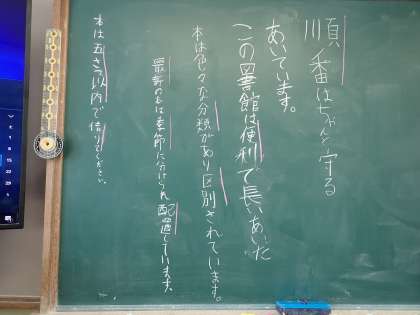 順番はちゃんと守る
この図書館は便利で長いあいた
あいています。
本は色々な分類があり区別されています。
最新の は季節に分けられ配置しています。
本は五さつ以内で借りてください。